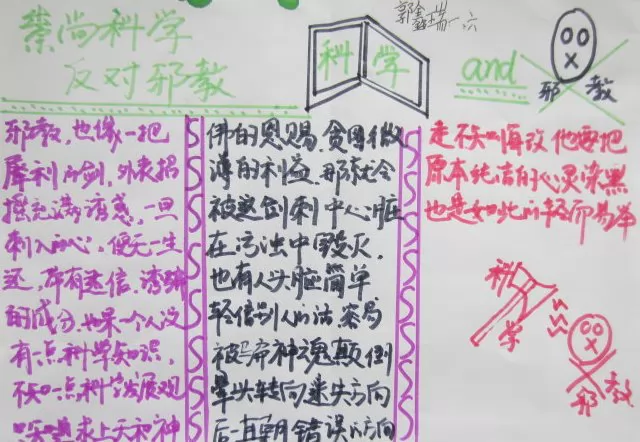 崇尚科学
反对邪教
科学
郭鑫瑞 一六
and
邪教
邪教，也像一把
犀利的剑，外表招
摇充满诱惑，一旦
刺入内心，便无一生
还，带有迷信、诱骗
的成分，如果一个人没
有一点科学知识，
不知一点科学发展观
求上天和神
佛的恩赐，贪图微
薄的利益，那就会
被这剑刺中心脏
在污浊中毁灭，
也有人头脑简单
轻信别人的话，容易
被骗神魂颠倒
晕头转向迷失方向
后一直朝错误的方向
走不知悔改他要把
原本纯洁的心灵染黑
也是如此的轻而易举
科学
邪教